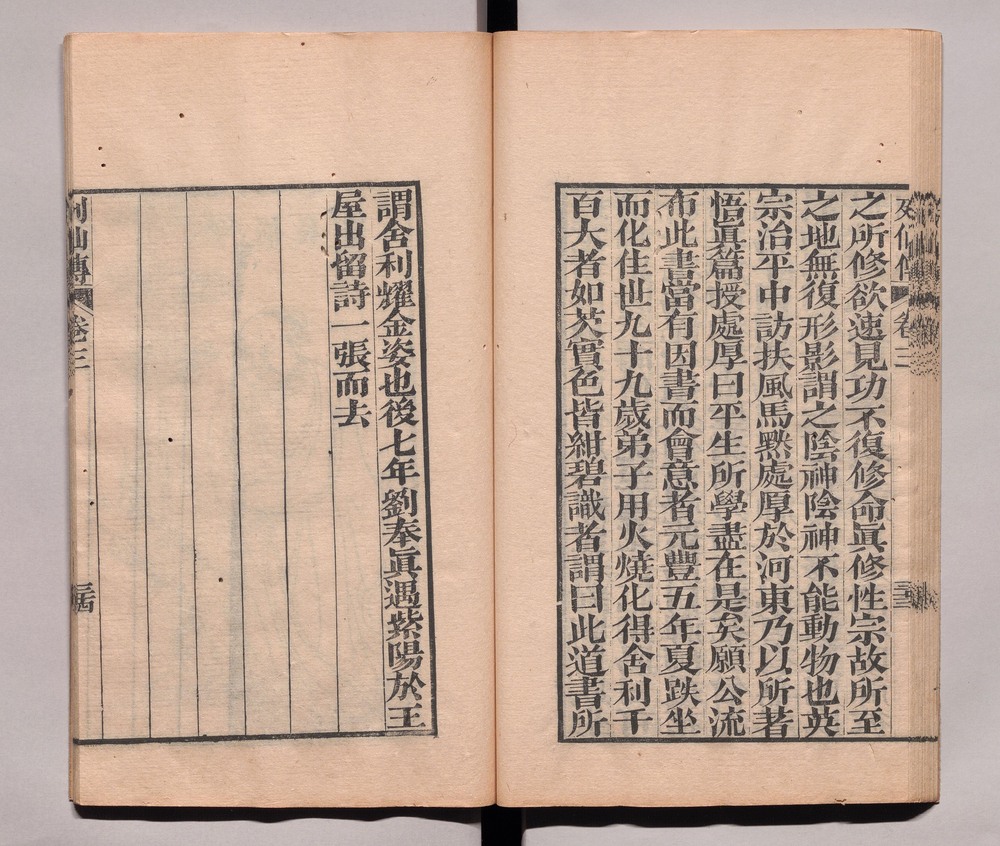 之所修欲速見功不復修命眞修性宗故所至
之地無復形影謂之陰神陰神不能動物也英
宗治平中訪扶風馬默處厚於河東乃以所著
悟眞篇授處厚曰平生所學盡在是矣願公流
布此書當有因書而會意者元豐五年夏趺坐
而化住世九十九歲弟子用火燒化得舍利千
百大者如芡實色皆紺碧識者謂曰此道書所
謂舍利耀金姿也後七年劉奉眞遇紫陽於王
屋出留詩一張而去
列仙傳
卷三